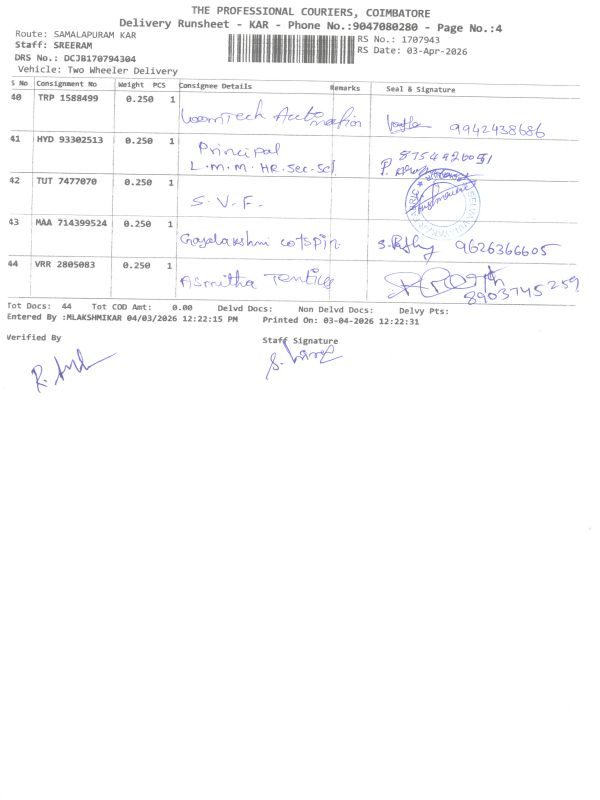 THE PROFESSIONAL COURIERS, COIMBATORE
Delivery Runsheet - KAR - Phone No.:9047080280 - Page No.:4
Route: SAMALAPURAM KAR
RS No.: 1707943
Staff: SREERAM
RS Date: 03-Apr-2026
DRS No.: DCJB170794304
Vehicle: Two Wheeler Delivery
S No Consignment No Weight PCS Consignee Details Remarks Seal & Signature
40 TRP 1588499 0.250 1 LoomTech Automation 9942438686
41 HYD 93302513 0.250 1 Principal
L.M.M.HR.Sec.Scl
42 TUT 7477070 0.250 1 S.V.F.
43 MAA 714399524 0.250 1 Gajalakshmi cotspin 9626366605
44 VRR 2805083 0.250 1 Asmitha 8903745259
Tot Docs: 44 Tot COD Amt: 0.00 Delvd Docs: Non Delvd Docs: Delvy Pts:
Entered By :MLAKSHMIKAR 04/03/2026 12:22:15 PM Printed On: 03-04-2026 12:22:31
Verified By
Staff Signature